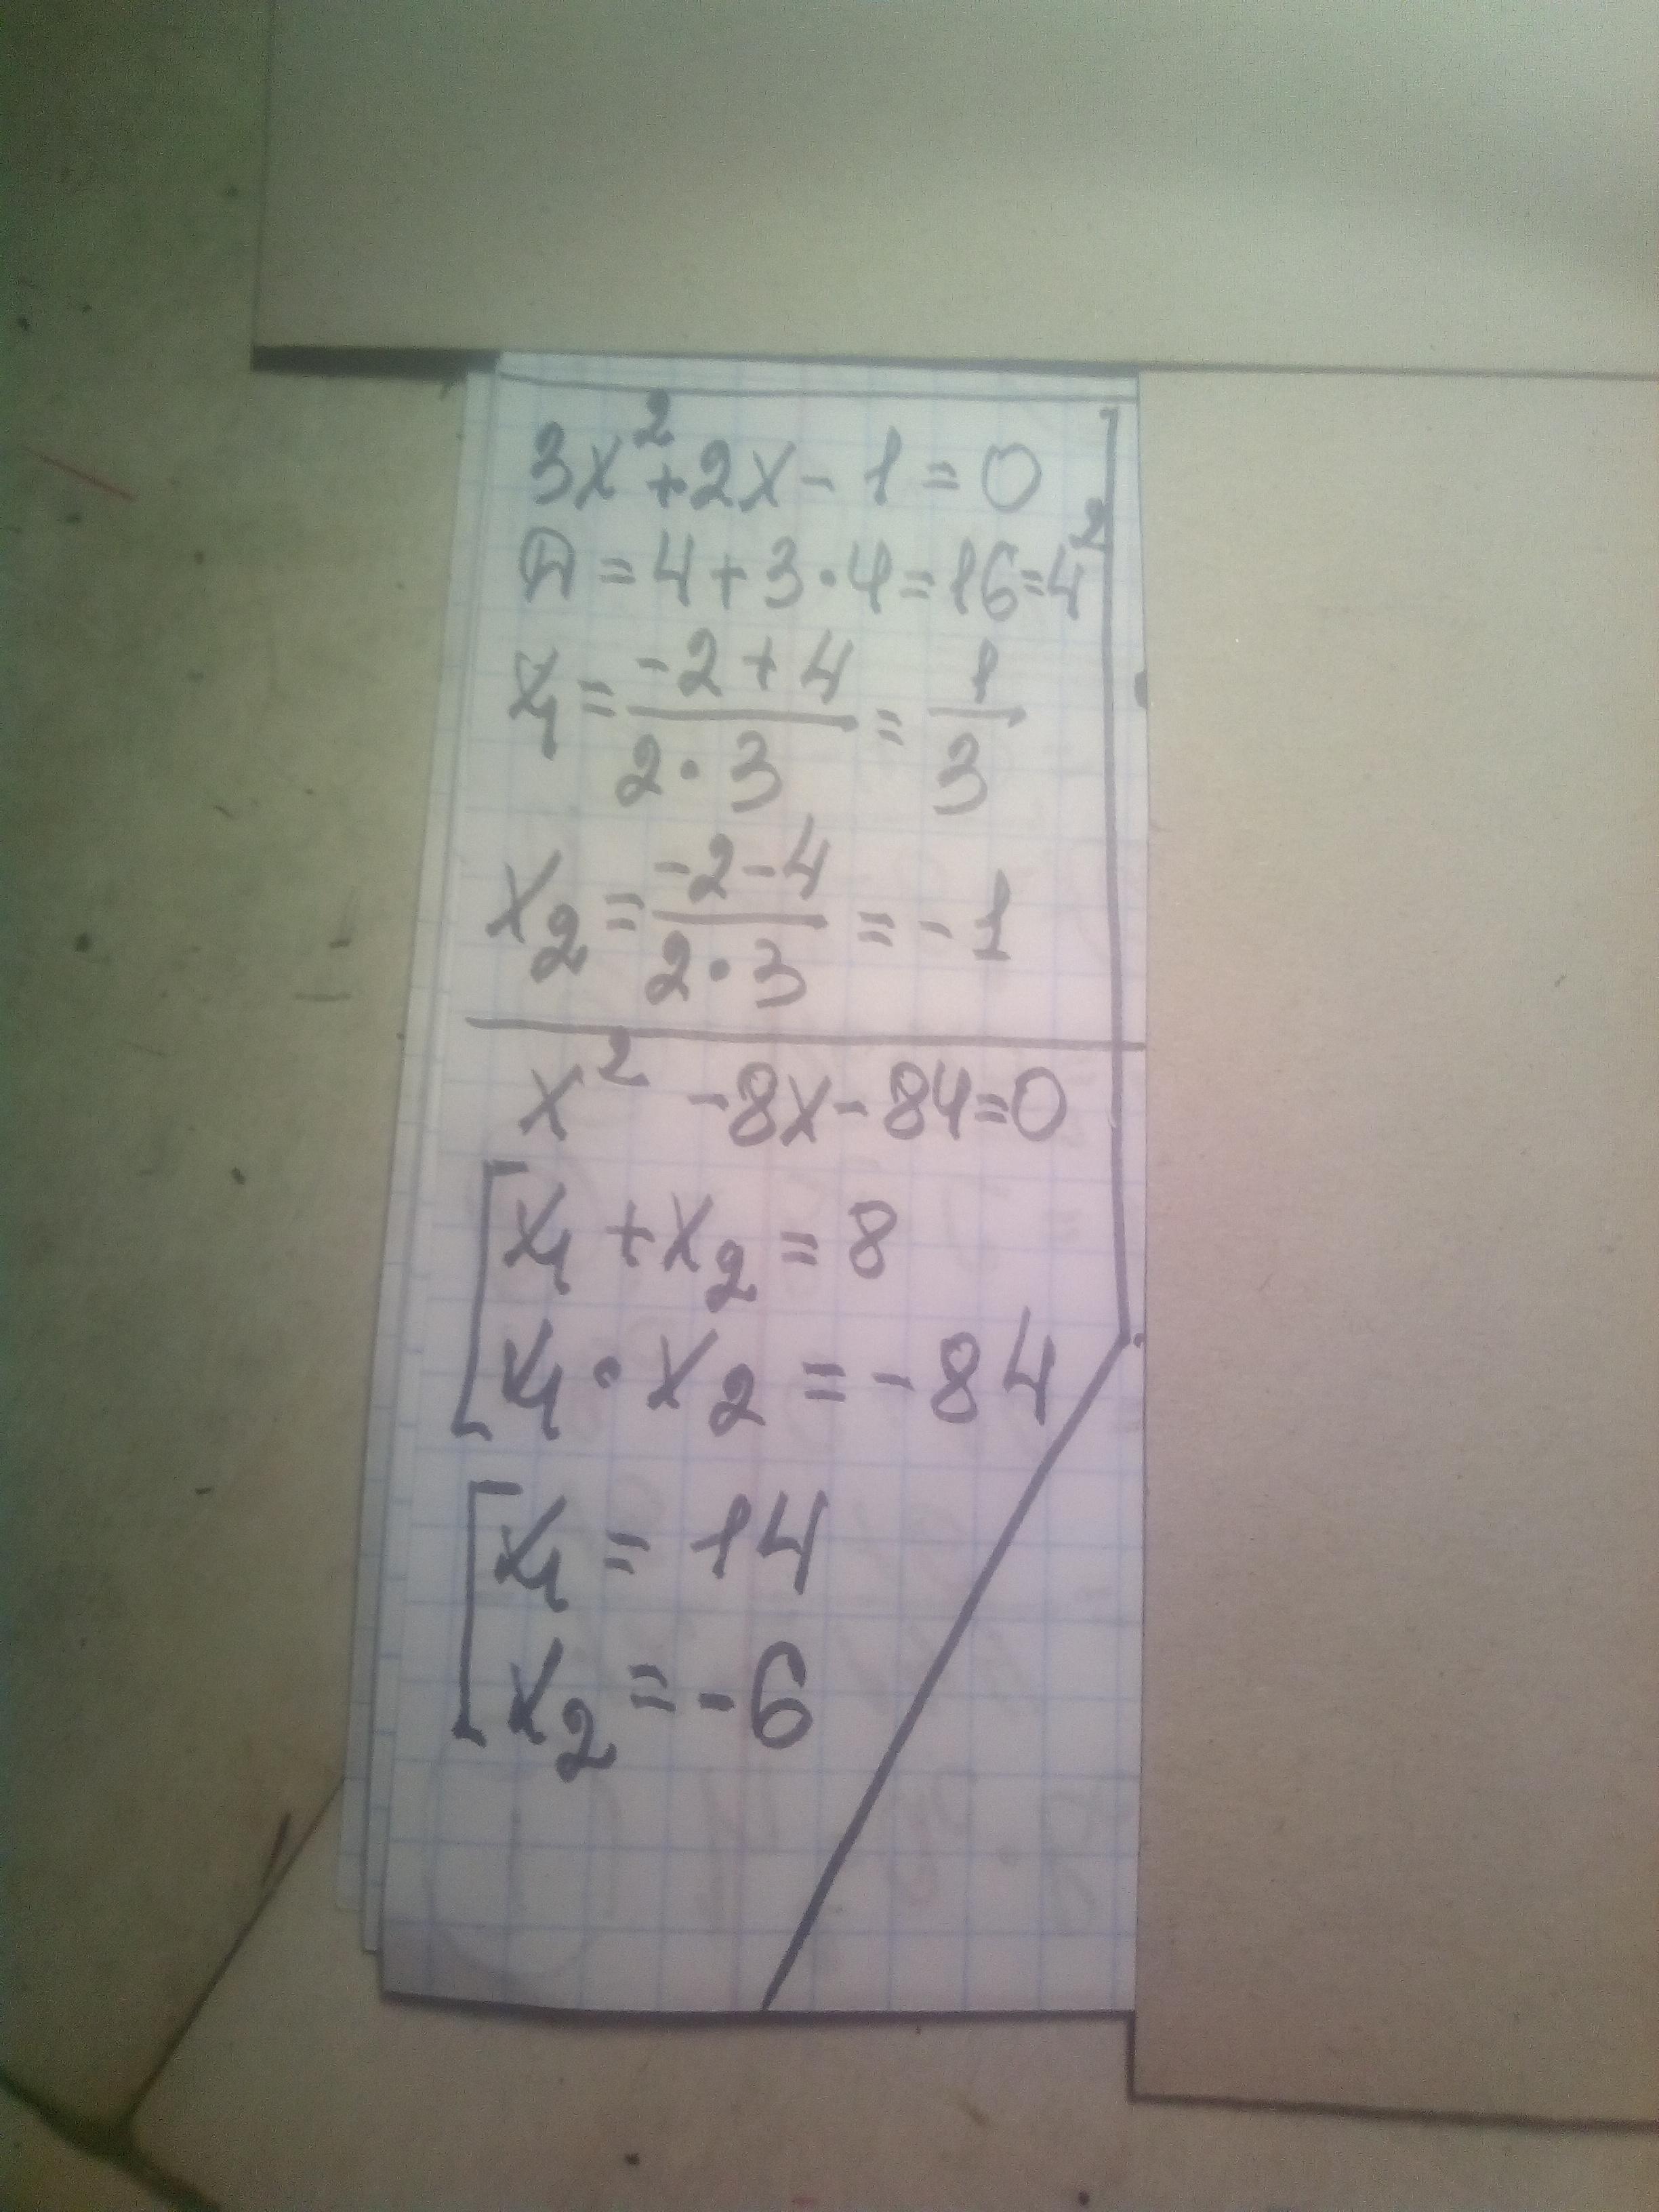 3x²+2x-1=0
Д=4+3·4=16=4²
x₁=(-2+4)/(2·3)=1/3
x₂=(-2-4)/(2·3)=-1
x²-8x-84=0
[x₁+x₂=8
[x₁·x₂=-84
[x₁=14
[x₂=-6